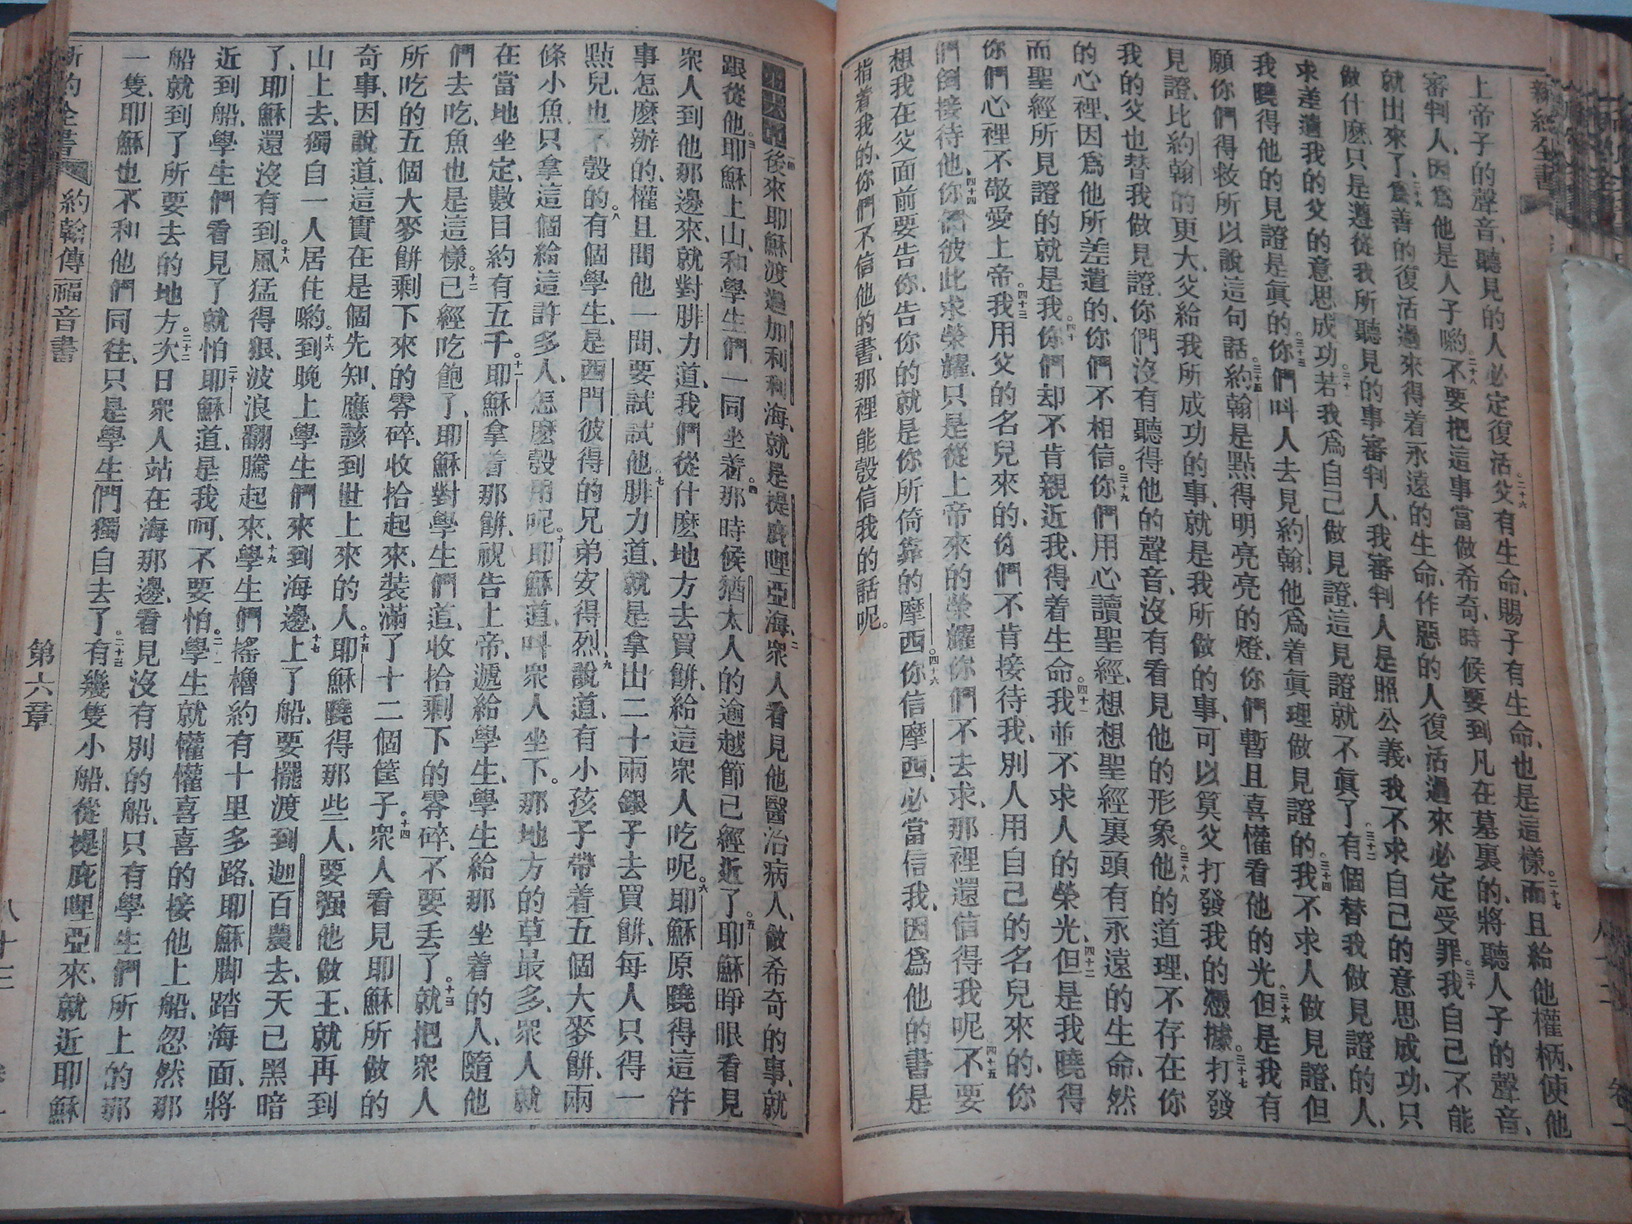 新約全書
上帝子的聲音、聽見的人必定復活。二十六父有生命、賜子有生命、也是這樣。二十七而且給他權柄、使他
審判人、因爲他是人子喲。二十八不要把這事當做希奇、時候要到、凡在墓裏的、將聽人子的聲音、
就出來了。二十九爲善的復活過來得着永遠的生命、作惡的人復活過來必定受罪。三十我自己不能
做什麽、只是遵從我所聽見的事審判人、我審判人是照公義、我不求自己的意思成功、只
求差遣我的父的意思成功。三十一若我爲自己做見證、這見證就不眞了。三十二有個替我做見證的人、
我曉得他的見證是眞的。三十三你們叫人去見約翰、他爲着眞理做見證的。三十四我不求人做見證、但
願你們得救、所以說這句話。三十五約翰是點得明亮亮的燈、你們暫且喜懽看他的光。三十六但是我有
見證、比約翰的更大、父給我所成功的事、就是我所做的事、可以算父打發我的憑據。三十七打發
我的父也替我做見證、你們沒有聽得他的聲音、沒有看見他的形象。三十八他的道理、不存在你
的心裡、因爲他所差遣的、你們不相信。三十九你們用心讀聖經、想想聖經裏頭有永遠的生命、然
而聖經所見證的就是我。四十你們却不肯親近我、得着生命。四十一我並不求人的榮光。四十二但是我曉得
你們心裡不敬愛上帝。四十三我用父的名兒來的、你們不肯接待我、別人用自己的名兒來的、你
們倒接待他。四十四你們彼此求榮耀、只是從上帝來的榮耀你們不去求、那裡還信得我呢。四十五不要
想我在父面前要告你、告你的就是你所倚靠的摩西。四十六你信摩西、必當信我、因爲他的書是
指着我的、你們不信他的書、那裡能彀信我的話呢。
後來耶穌渡過加利利海、就是提庇哩亞海。二衆人看見他醫治病人、做希奇的事、就
跟從他。三耶穌上山、和學生們一同坐着。四那時候猶太人的逾越節已經近了。五耶穌睜眼看見
衆人到他那邊來、就對腓力道、我們從什麽地方去買餅、給這衆人吃呢。六耶穌原曉得這件
事怎麽辦的、權且問他一問、要試試他。七腓力道、就是拿出二十兩銀子去買餅、每人只得一
點兒、也不彀的。八有個學生、是西門彼得的兄弟安得烈、九說道、有小孩子帶着五個大麥餅、兩
條小魚、只拿這個給這許多人、怎麽彀用呢。十耶穌道、叫衆人坐下。那地方的草最多、衆人就
在當地坐定、數目約有五千。十一耶穌拿着那餅、祝告上帝、遞給學生、學生給那坐着的人、隨他
們去吃、魚也是這樣。十二已經吃飽了、耶穌對學生們道、收拾剩下的零碎、不要丟了。十三就把衆人
所吃的五個大麥餅剩下來的零碎、收拾起來、裝滿了十二個筐子。十四衆人看見耶穌所做的
奇事、因說道、這實在是個先知、應該到世上來的人。十五耶穌曉得那些人、要强他做王、就再到
山上去、獨自一人居住喲。十六到晚上學生們來到海邊。十七上了船、要擺渡到迦百農去、天已黑暗
了、耶穌還沒有到。十八風猛得狠、波浪翻騰起來。十九學生們搖櫓約有十里多路、耶穌脚踏海面、將
近到船、學生們看見了就怕。二十耶穌道、是我呵、不要怕。二十一學生就懽懽喜喜的接他上船、忽然那
船就到了所要去的地方。二十二次日衆人站在海那邊、看見沒有別的船、只有學生們所上的那
一隻、耶穌也不和他們同往、只是學生們獨自去了。二十三有幾隻小船、從提庇哩亞來、就近耶穌
新約全書 約翰傳福音書 第六章 八十三